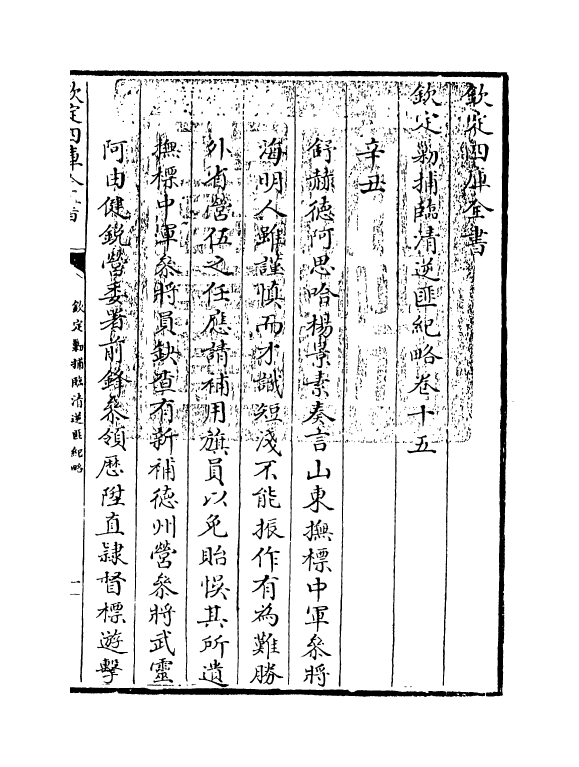 欽定四庫全書
欽定勦捕臨清逆匪紀略卷十五
辛丑
舒赫德阿思哈楊景素奏言山東撫標中軍叅將
海明人雖謹慎而才識短淺不能振作有為難勝
外省營伍之任應請補用旗員以免貽悞其所遺
撫標中軍叅將員缺查有新補徳州營叅將武靈
阿由健銳營委署前鋒叅領歴陞直隷督標遊擊
欽定四庫全書
欽定勦捕臨清逆匪紀略
一